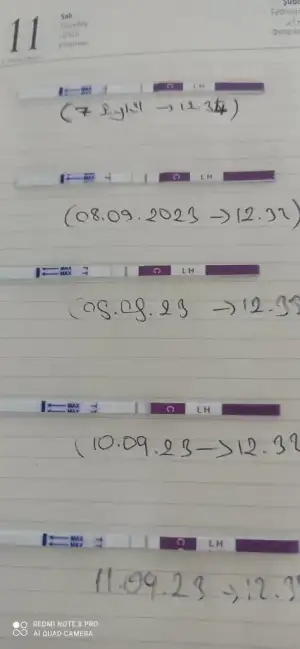 11
Salı
MAX
C LH
(7 Eylül → 12.34)
C LH
(08.09.2023 → 12.32)
MAX
MAX
C LH
(09.09.23 → 12.33
MAX
MAX
C LH
(10.09.23 → 12.32
MAX
MAX
C LH
11.09.23 → 12.3
REDMI NOTE 8 PRO
AI QUAD CAMERA